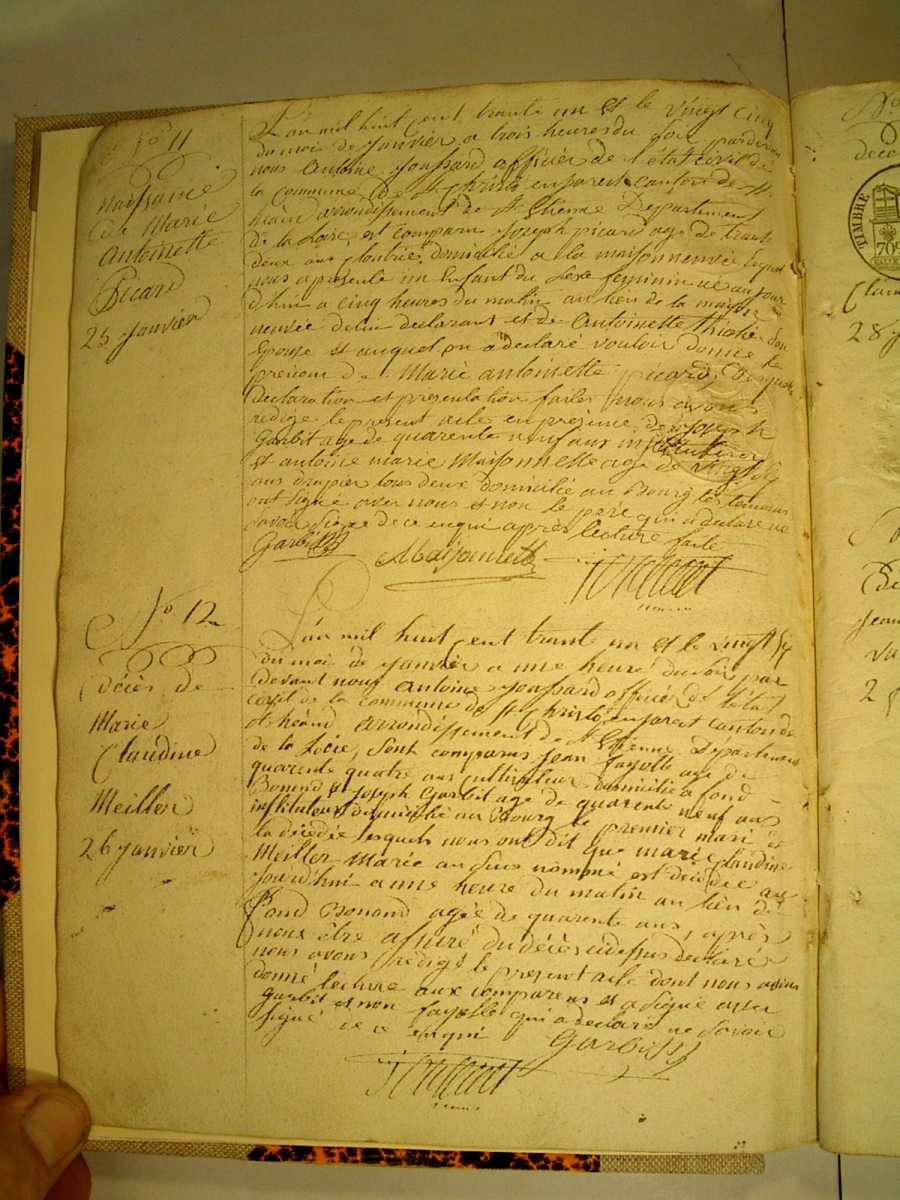 No 11
Naissance
de Marie
Antoinette
Picard
25 janvier
L'an mil huit cent trante un et le vingt cinq
du moi de janvier a trois heures du soir par devan
nous Antoine officier de l'état civil de
la Commune de St Christo en jarest canton de St
heand arrondissement de St Etienne Departement
de la Loire, est comparu Joseph picard age de trante
deux ans domicilié a la maisonneuve lequel
nous a presenté un enfant du sexe feminin né aujour
d'hui a cinq heures du matin au lieu de la maison
neuvée de lui declarant et de Antoinette son
Epouse et auquel on a declaré vouloir donné le
prenom de Marie antoinette picard,
declaration et presentation faites nous avons
redigé le present acte en presence de joseph
Garbit age de quarente neuf ans instituteur
et antoine marie Maisonnette age de vingt six
ans drapier tous deux domicilié au Bourg les temoins
ont signé avec nous et non le pere qui a declaré ne
savoir signe de ce enqui après lecture faite
Garbit
Maisonnette
No 12
décès de
Marie
Claudine
Meiller
26 janvier
L'an mil huit cent trante un et le vingt six
du moi de janvier a une heure du soir par
devant nous Antoine officié de l'état
civil de la commune de St Christo en jarest canton de
St heand arrondissement de St Etienne Departement
de la Loire, sont comparus Jean fayolle age de
quarente quatre ans cultivateur domicilié a fond
Bonand et Joseph Garbit age de quarente neuf ans
instituteur domicilié au Bourg le premier mari de
la décédée lesquels nous ont dit que marie claudine
Meiller Marié au sus nommé est décédée au
jourd'hui a une heure du matin au lieu de
fond Bonand agée de quarente ans, après
nous être assuré du décès cidessus declaré
nous avons redigé le present acte dont nous avons
donné lecture aux comparens et a signé avec
Garbit et non fayolle qui a declaré ne savoir
signé de ce enqui
Garbit
No
déce
TIMBRE
70c
Clau
28 j
Jean
2